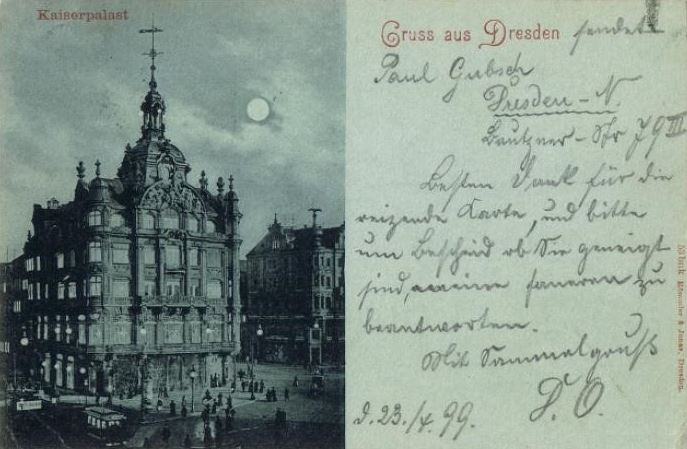 Kaiserpalast
Gruss aus Dresden sendet
Paul Gubsch
Dresden-N.
Bautzner-Str 79 III
Besten Dank für die
reizende Karte, und bitte
um Bescheid ob Sie geneigt
sind, meine ferneren zu
beantworten.
Mit Sammelgruß
d. 23./4. 99. D. O.
Römmler & Jonas, Dresden.